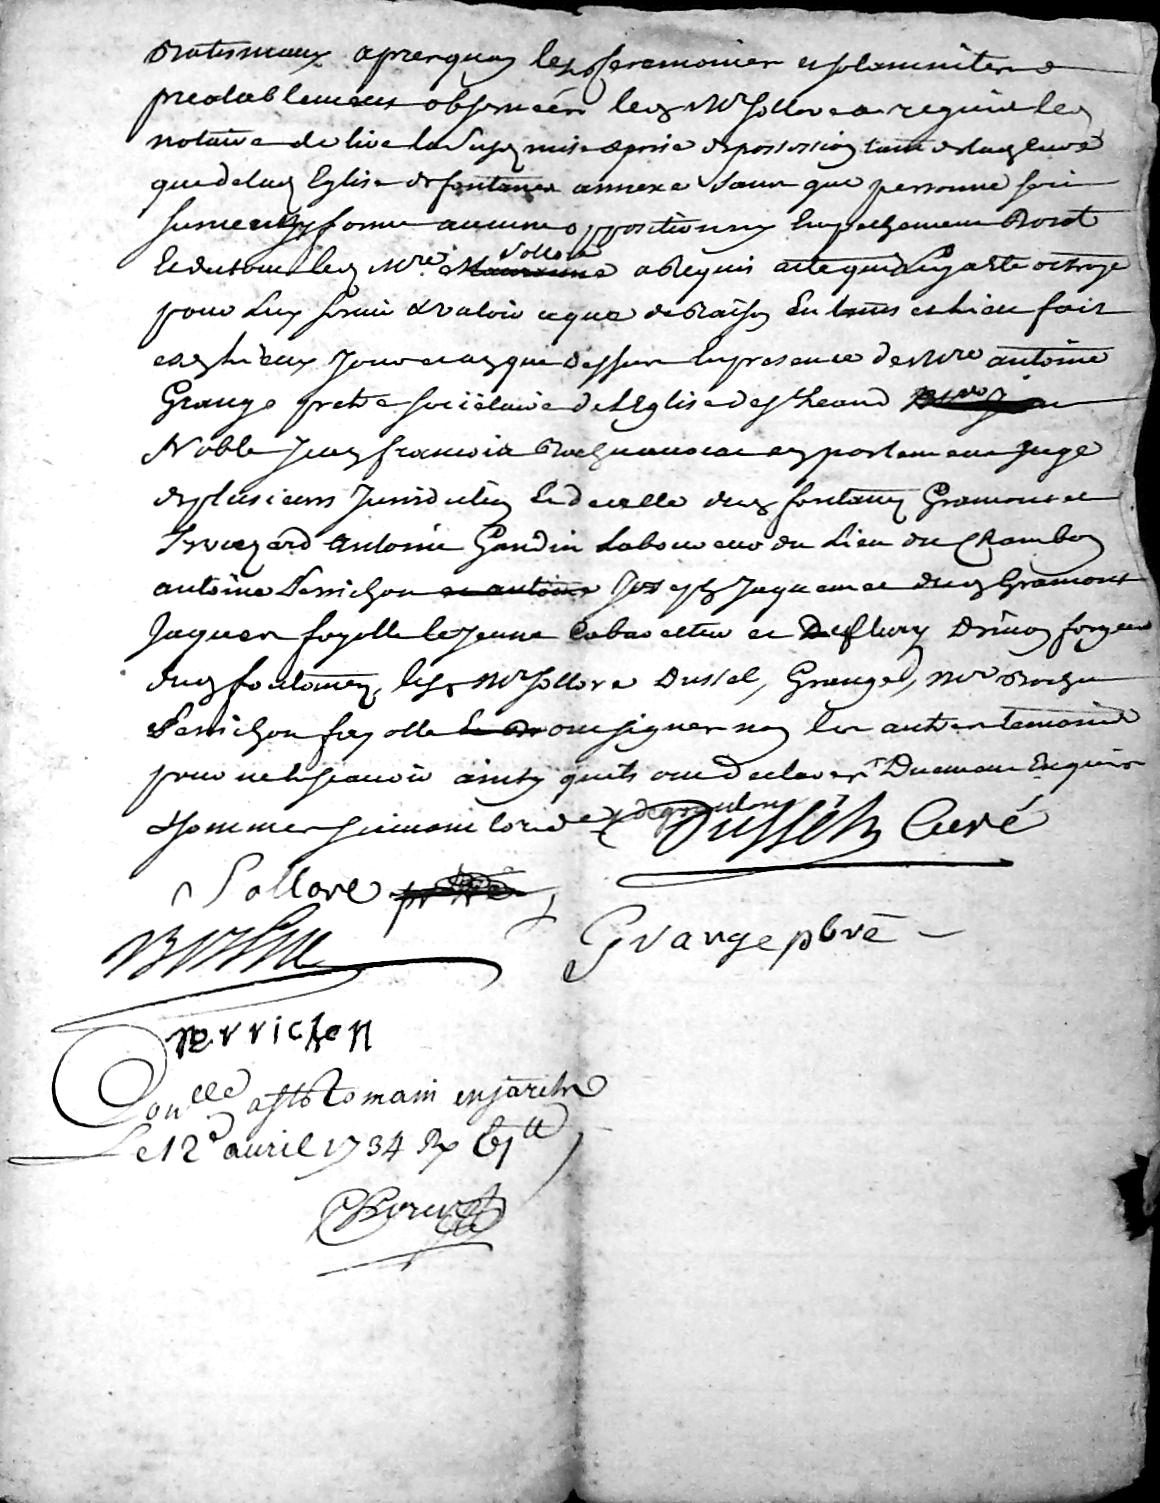 Batismaux apres quoy les ceremonies et solemnites
prealablement observées led Mre Sollove a requis led
notaire de lire la susd mise & prise de possession tant de lad cure
que de lad Eglise de fontanes annexe sans que personne soit
survenu y former aucunes oppositions ny Empechement Dont
Et du tout led Mre Sollove a Requis acte que luy ait octroyé
pour luy servir & valoir ce que de Raison En tems et Lieu fait
esd Lieux Jour et an que Dessus En presence de Mre antoine
Grange pretre societaire de l'Eglise de st heand
Noble Jean françois en parlement Juge
de plusieurs Jurisdictions Et de celle dud fontanes Gramont et
antoine Gandin Laboureur du Lieu du Chambon
antoine Perrichon et antoine Joseph Jaquemet dud Gramont
Jaques fayolle le Jeune Cabarettier et fleury forgeur
dud fontanes, lesd Mre Sollove Dussel, Grange, Mre
Perrichon fayolle ont signer non les autres temoins
pour ne le sçavoir ainsy quils ont declarer Duement Enquis
& sommes suivant lordce
Dussel Curé
Sollove ptre
Grange pbre
Perrichon
Conlle a st Romain en jarest
Le 12e avril 1734 Rx